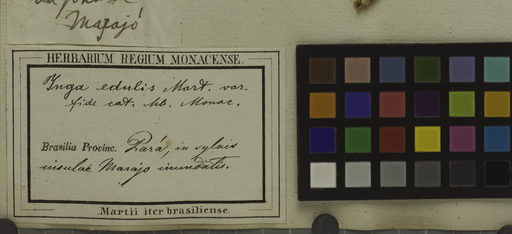 Marajó
HERBARIUM REGIUM MONACENSE.
Inga edulis Mart. var.
fide cat. hb. Monac.
Brasilia Provinc. Pará, in sylvis
insulae Marajo inundatis.
Martii iter brasiliense.